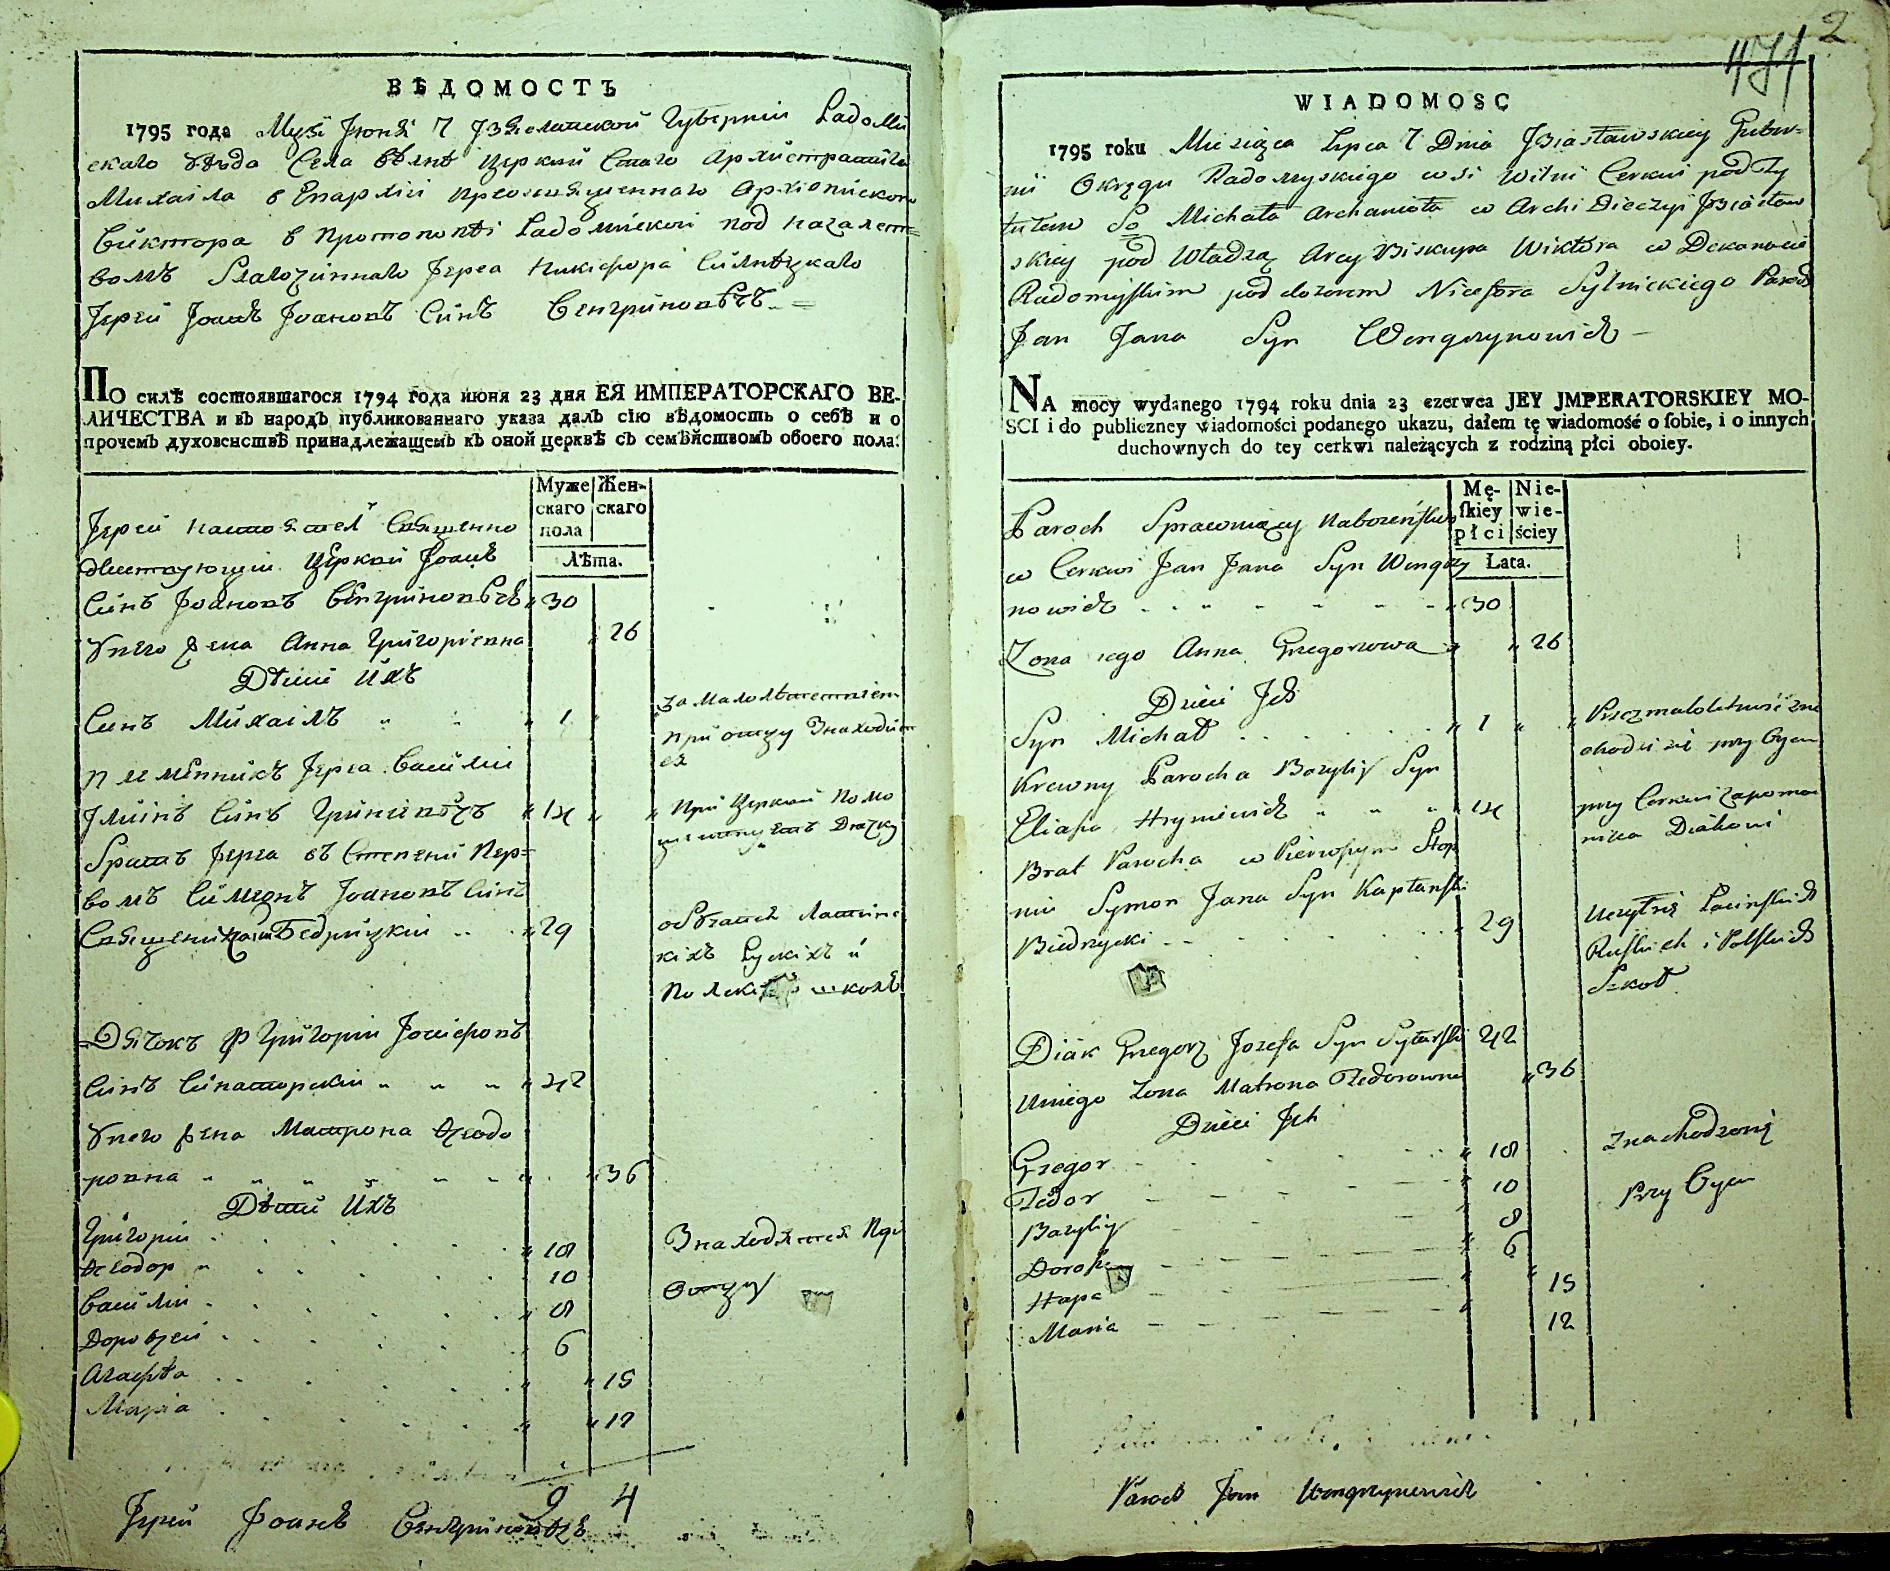 ВѢДОМОСТЬ
1795 года Мцы Іюня 7 Ізяславской Губерніи Радомы
скаго уѣзда Села Вѣлнѣ Церкви Стаго Архистратига
Михаила в Епархіи преосвященнаго Архіепископа
Виктора в протопопѣи Радомиской под началст=
вомъ Благочиннаго Іерея Никифора Силнѣцкаго
Іерей Іоанъ Іоановъ Синъ Венгриновѣчъ
ПО силѣ состоявшагося 1794 года июня 23 дня ЕЯ ИМПЕРАТОРСКАГО ВЕ-
ЛИЧЕСТВА и въ народъ публикованнаго указа далъ сію вѣдомость о себѣ и о
прочемъ духовенствѣ принадлежащемъ къ оной церквѣ съ семѣйствомъ обоего пола:
Муже Жен-
скаго скаго
пола
Лѣта.
Іерей настоятел Священно
дѣйствующій Церкви Іоанъ
Синъ Іоановъ Венгриновѣчъ 30
У него жена Анна Григоріевна 26
Дѣти Ихъ
Синъ Михаилъ 1 за малолѣтствіем
при отцу Знаходит
ся
племѣнникъ Іерея Василій
Ілиинъ Синъ Гриневѣчъ 14 При Церкви помо
ществуетъ Дячку
Братъ Іерея въ Степени Пер=
вомъ Симеонъ Іоановъ Синъ
Священичій Бедрицкій 29 обучался Латинс
кихъ Рускихъ и
Полскихъ школъ
Дячокъ Григорій Іосифовъ
Синъ Синаторскій 42
У него жена Матрона Ѳеодо
ровна 36
Дѣти Ихъ
Григорій 18 Знаходятся При
Ѳеодор 10 Отцу
Василій 8
Доровѳей 6
Агафѣа 15
Марія 12
9 4
Іерей Іоанъ Венгриновѣчъ
2
471
WIADOMOSC
1795 roku Miesiąca Lipca 7 Dnia Jzasławskiey Guber=
nii Okręgu Radomyskiego wsi Wilni Cerkwi pod Ty
tułem So Michała Archanioła w Archi Dieczyi Jzasław
skiey pod Władzą Arcy Biskupa Wiktora w Dekanacie
Radomyslkim pod dozorem Nicefora Sylnickiego Paroch
Jan Jana Syn Wengrynowich
NA mocy wydanego 1794 roku dnia 23 czerwca JEY JMPERATORSKIEY MO-
SCI i do publiczney wiadomości podanego ukazu, dałem tę wiadomość o sobie, i o innych
duchownych do tey cerkwi należących z rodziną płci oboiey.
Mę- Nie-
skiey wie-
płci ściey
Lata.
Paroch Sprawuiący Nabożeństwo
w Cerkwi Jan Jana Syn Wengry
nowich 30
Żona iego Anna Gregorzowa 26
Dzieci Jch
Syn Michał 1 Przez małoletność zna
chodzi się przy Oycu
Krewny Parocha Bazyliy Syn
Eliasza Hryniewich 14 przy Cerkwi zapoma
nika Diakowi
Brat Parocha w Pierwszym Stop
niu Symon Jana Syn Kapłański
Biedrzycki 29 Uczył się Łacińskich
Ruskich i Polskich
Szkoł
Diak Gregorz Jozefa Syn 42
Uniego Żona Matrona Fedorowna 36
Dzieci Jch
Gregor 18 znachodzonsię
Fedor 10 Przy Oycu
Bazyliy 8
6
Hapa 15
Maria 12
Paroch Jan Wengrynowich